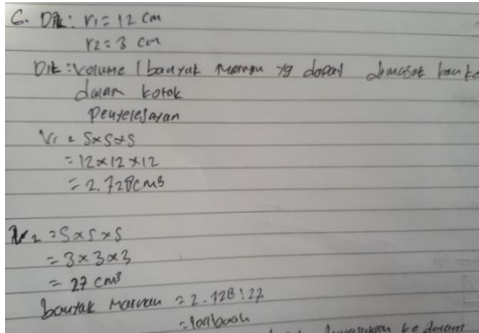 6. Dik: r1 = 12 cm
r2 = 3 cm
Dit: Volume / banyak yg dapat dimasukkan ke
dalam kotak
Penyelesaian
V1 = S×S×S
= 12×12×12
= 2.728 cm3
V2 = S×S×S
= 3×3×3
= 27 cm3
banyak = 2.728:27
ke dalam